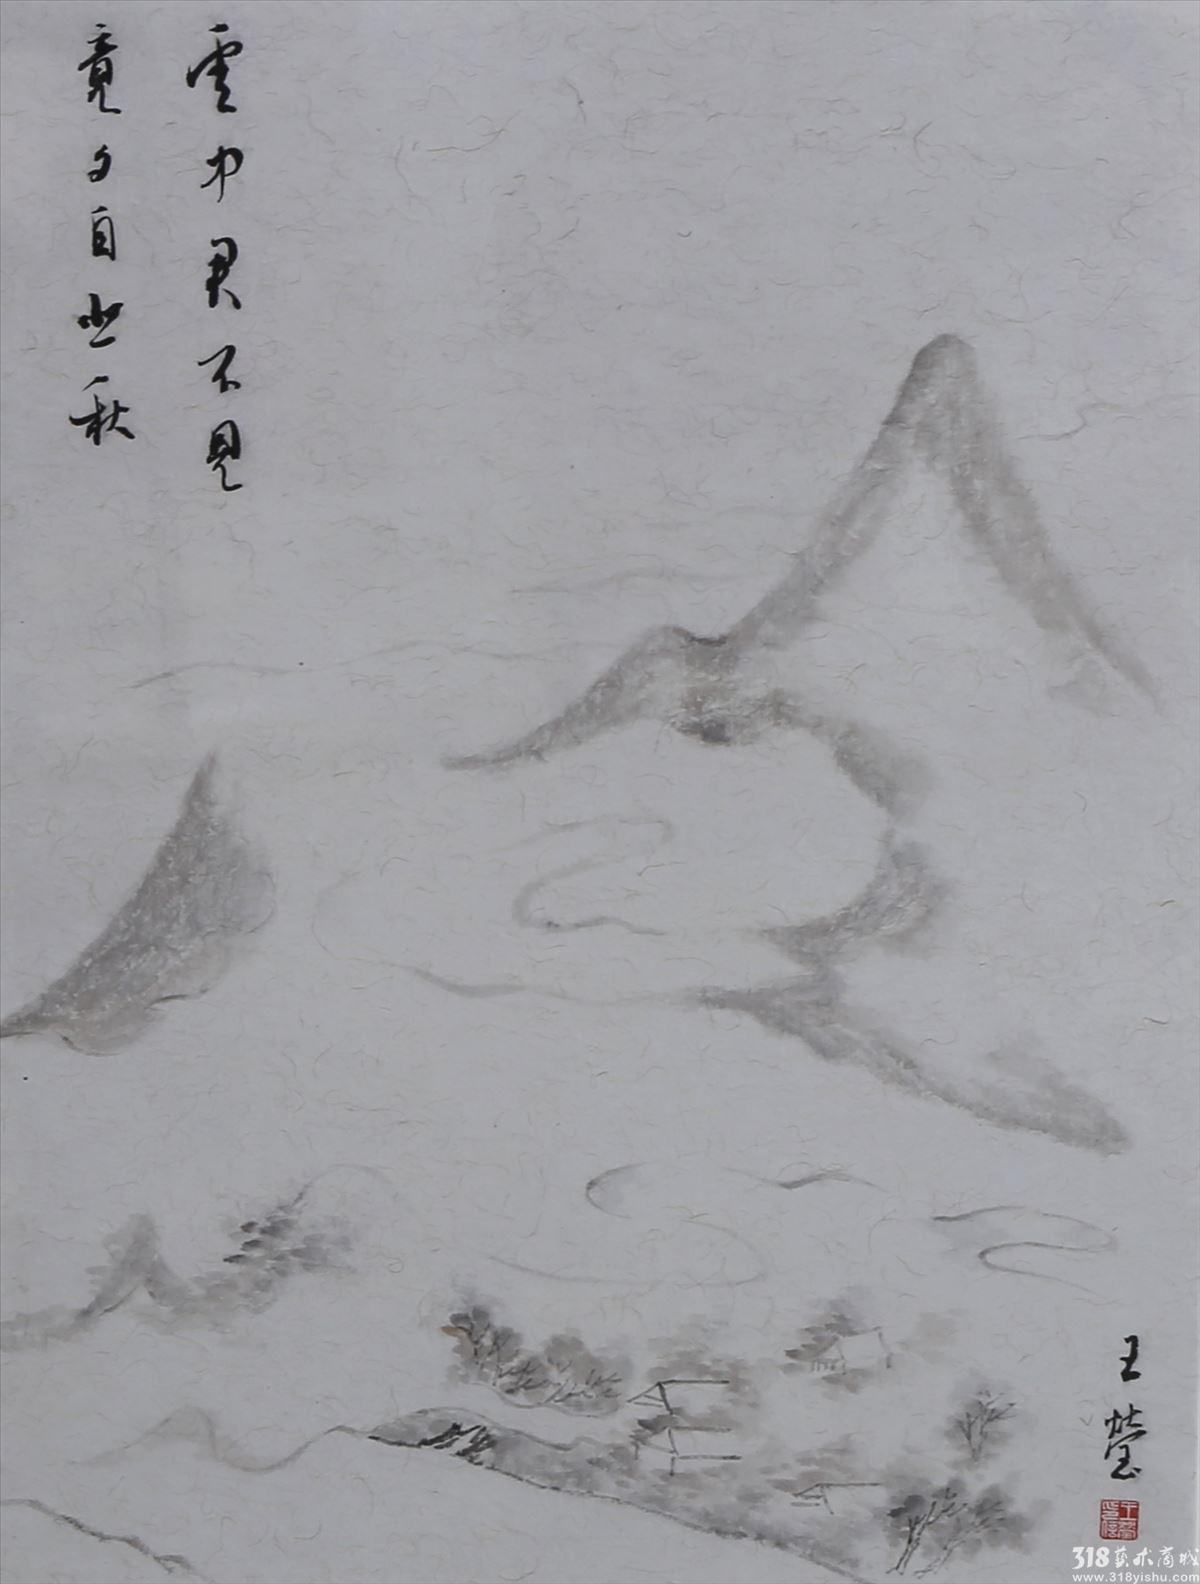 雲中君不見
竟夕自悲秋
王瑩
318艺术商城
www.318yishu.com